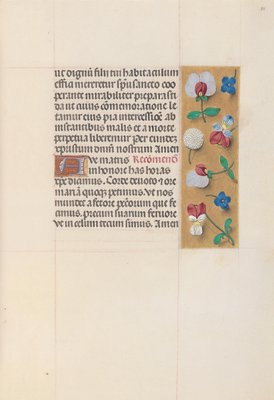 ut dignū filii tui habitaculum
effici mereretur spū sancto coo
perante mirabiliter preparasti
da ut cuius cōmemoratione le
tamur eius pia intercessiōe ab
instantibus malis et a morte
perpetua liberemur Per eundē
xpristum dnm̄ nostrum Amen
Ave matris Recōmend
in honore has horas
xpe dicimus. Corde devoto ⁊ ore
mariā quoqꝫ petimus ve nos
mundet a fetore peccorum que fe
cimus. precum suarum fervore
ve in celum tecum simus. Amen